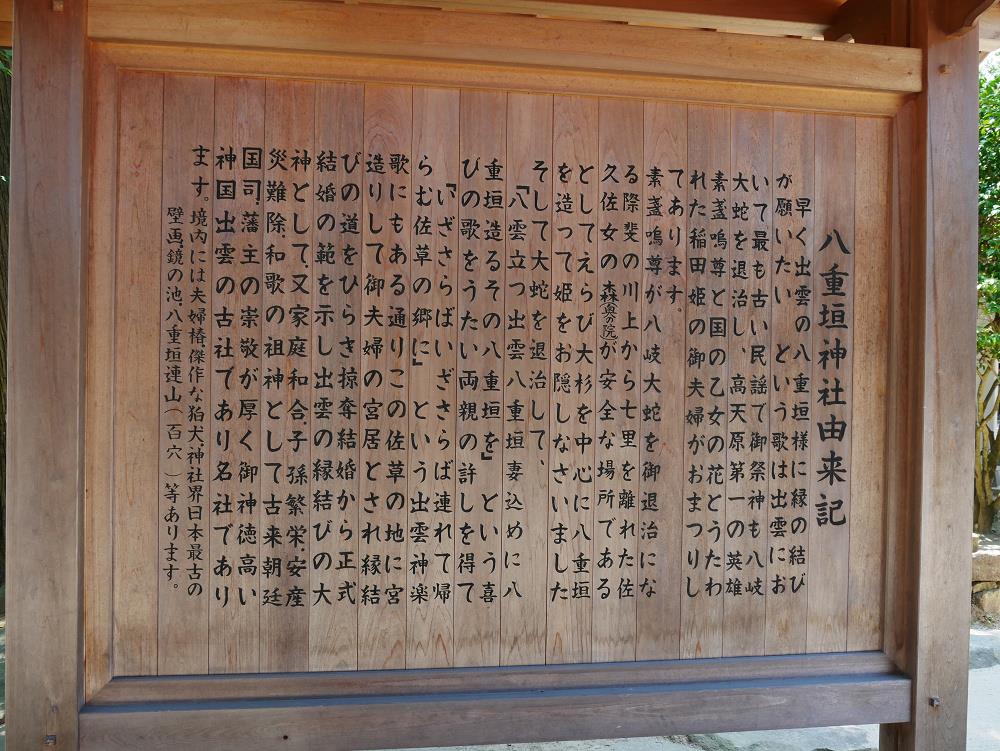 八重垣神社由来記
早く出雲の八重垣様に縁の結び
が願いたい という歌は出雲にお
いて最も古い民謡で御祭神も八岐
大蛇を退治し、高天原第一の英雄
素盞嗚尊と国の乙女の花とうたわ
れた稲田姫の御夫婦がおまつりし
てあります。
素盞嗚尊が八岐大蛇を御退治にな
る際斐の川上から七里を離れた佐
久佐女の森(奥の院)が安全な場所である
としてえらび大杉を中心に八重垣
を造って姫をお隠しなさいました
そして大蛇を退治して、
『八雲立つ出雲八重垣妻込めに八
重垣造るその八重垣を』という喜
びの歌をうたい両親の許しを得て
『いざさらばいざさらば連れて帰
らむ佐草の郷に』という出雲神楽
歌にもある通りこの佐草の地に宮
造りして御夫婦の宮居とされ縁結
びの道をひらき掠奪結婚から正式
結婚の範を示し出雲の縁結びの大
神として、又家庭和合、子孫繁栄、安産
災難除、和歌の祖神として古来朝廷
国司、藩主の崇敬が厚く御神徳高い
神国出雲の古社であり名社であり
ます。境内には夫婦椿、傑作な狛犬、神社界日本最古の
壁画、鏡の池、八重垣連山(百穴)等あります。